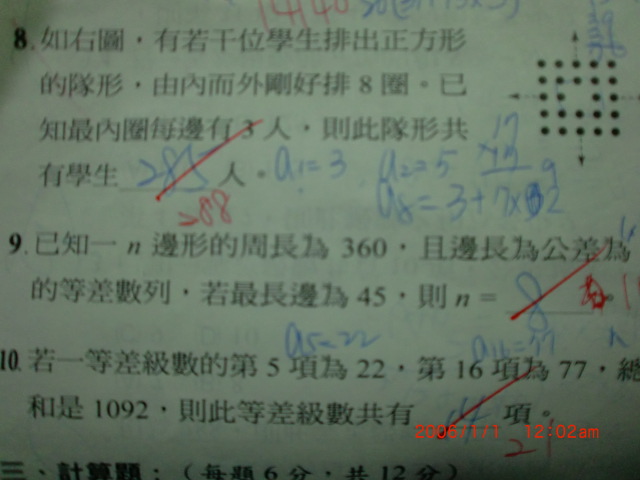 8. 如右圖，有若干位學生排出正方形
的隊形，由內而外剛好排 8 圈。已
知最內圈每邊有 3 人，則此隊形共
有學生 285 人。 a₁=3 a₂=5
288 a₈=3+7×2
9. 已知一 n 邊形的周長為 360，且邊長為公差為
的等差數列，若最長邊為 45，則 n = 8 。
a₅=22
10. 若一等差級數的第 5 項為 22，第 16 項為 77，總
和是 1092，則此等差級數共有 項。
2006/1/1 12:02am
21
三、計算題：（每題 6 分，共 12 分）